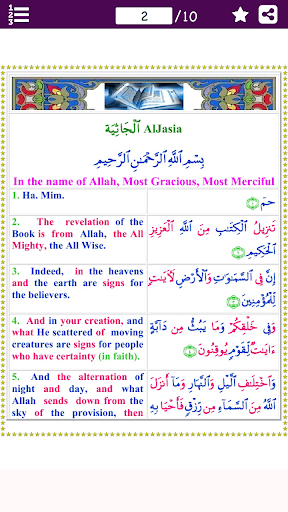 1
2
3
2 /10
اَلْجَاثِيَة AlJasia
بِسْمِ ٱللَّهِ ٱلرَّحْمَٰنِ ٱلرَّحِيمِ
In the name of Allah, Most Gracious, Most Merciful
1. Ha. Mim.
حمٓ ۝١
2. The revelation of the
Book is from Allah, the All
Mighty, the All Wise.
تَنزِيلُ ٱلْكِتَٰبِ مِنَ ٱللَّهِ ٱلْعَزِيزِ
ٱلْحَكِيمِ ۝٢
3. Indeed, in the heavens
and the earth are signs for
the believers.
إِنَّ فِى ٱلسَّمَٰوَٰتِ وَٱلْأَرْضِ لَءَايَٰتٍ
لِّلْمُؤْمِنِينَ ۝٣
4. And in your creation, and
what He scattered of moving
creatures are signs for people
who have certainty (in faith).
وَفِى خَلْقِكُمْ وَمَا يَبُثُّ مِن دَآبَّةٍ
ءَايَٰتٌ لِّقَوْمٍ يُوقِنُونَ ۝٤
5. And the alternation of
night and day, and what
Allah sends down from the
sky of the provision, then
وَٱخْتِلَٰفِ ٱلَّيْلِ وَٱلنَّهَارِ وَمَآ أَنزَلَ
ٱللَّهُ مِنَ ٱلسَّمَآءِ مِن رِّزْقٍ فَأَحْيَا بِهِ